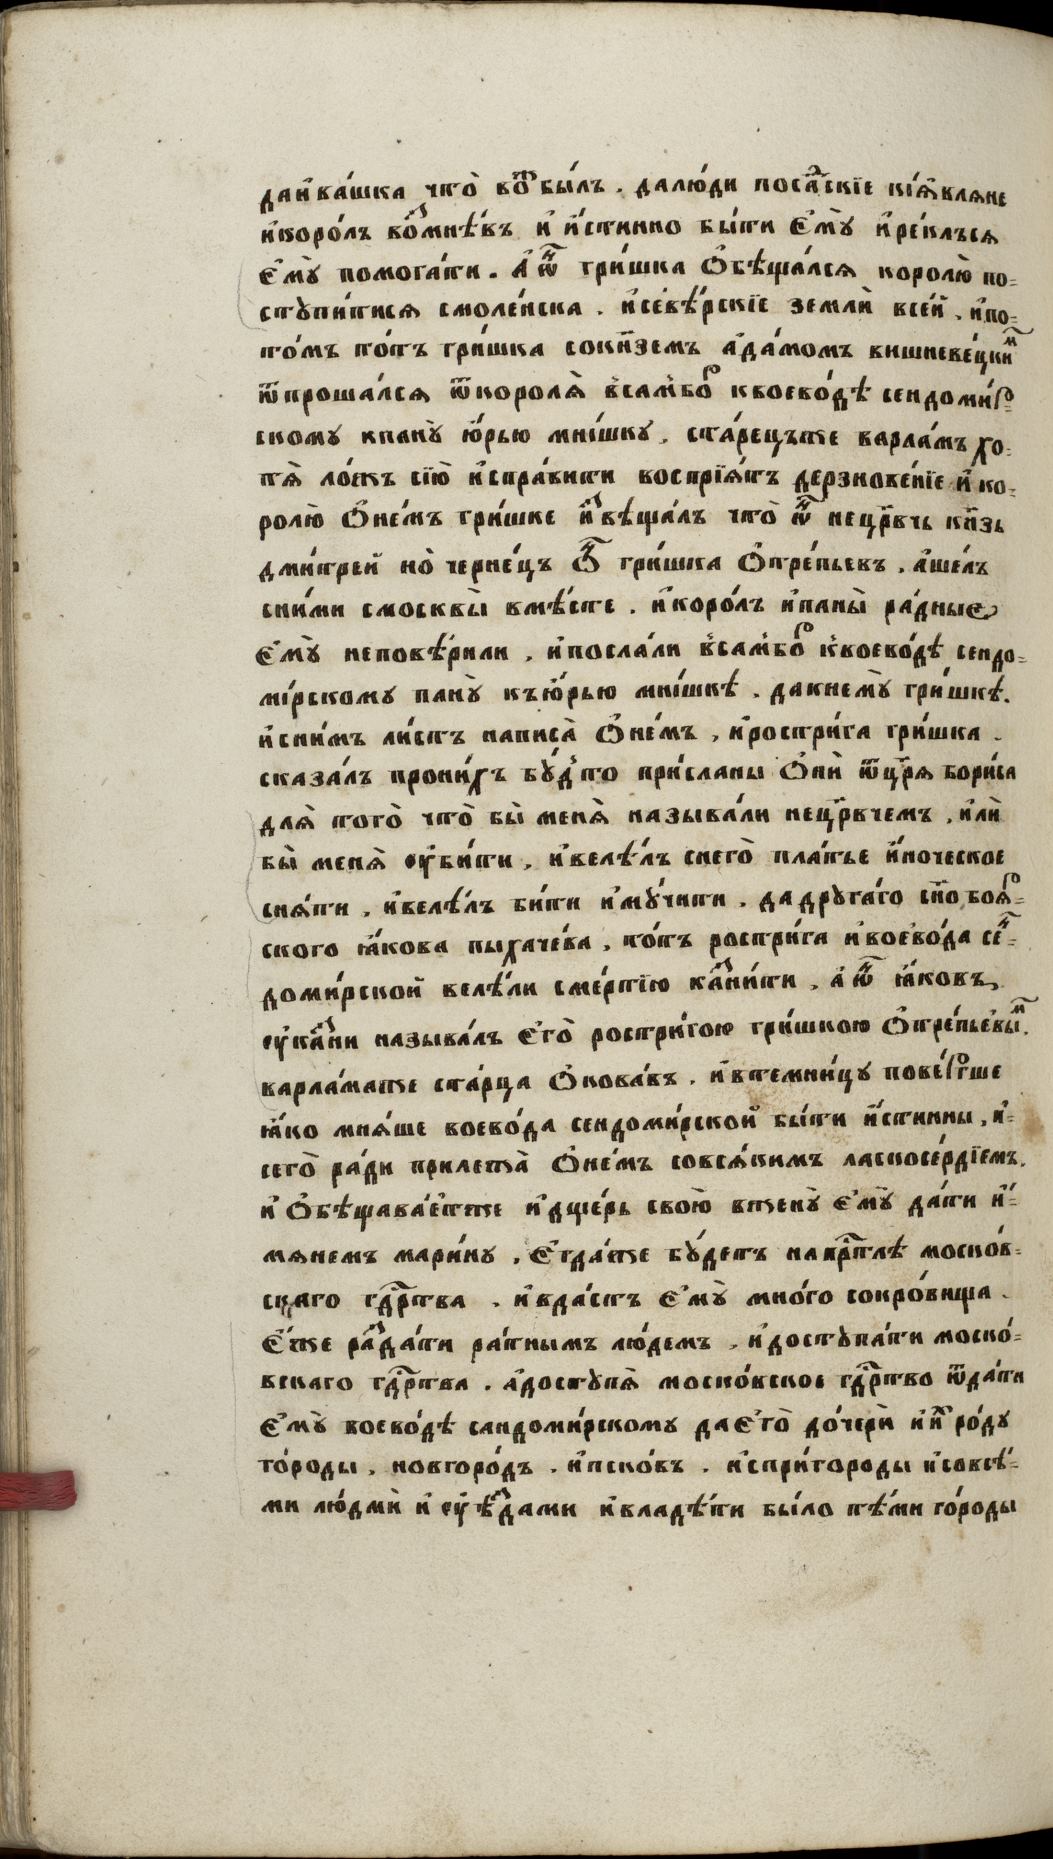 даи҆ва́шка что̀ вотбы́лъ . далю́ди поса́дскїе кїѧ҆влѧне
и҆коро́лъ во́змнѣвъ и҆ и҆́стинно бы́ти є҆мꙋ̀ и҆ре́клъсѧ
є҆мꙋ̀ помога́ти . а҆ѡ҆н гри́шка ѻ҆бѣща́лсѧ королю̀ по=
стꙋпи́тисѧ смоле́нска . и҆сѣ́верскїе землѝ все́й . и҆по=
то́мъ то́тъ гри́шка сокн҃земъ а҆да́момъ вишневе́цким
ѿпроша́лсѧ ѿкоролѧ̀ в̾са́мбор квоево́дѣ сендоми́р=
скомꙋ кпанꙋ̀ ю҆́рью мнї́шкꙋ . ста́рецъже варла́мъ хо=
тѧ̀ ло́жъ сїю̀ и҆спра́вити воспрїѧ́тъ дерзнове́нїе и҆ко=
ролю̀ ѻ҆не́мъ гри́шке и҆звѣща́лъ что̀ ѡ҆н нецр҃вчь кн҃зь
дми́трей но̀ черне́цъ ѻ҆н гри́шка ѻ҆тре́пьевъ . а҆ше́лъ
сни́ми смосквы̀ вмѣ́сте . и҆коро́лъ и҆паны̀ ра́дные
є҆мꙋ̀ неповѣ́рили . и҆посла́ли в̾са́мбор к̾воево́дѣ сендо=
мі́рскомꙋ панꙋ̀ къю҆́рью мнї́шкѣ . дакнемꙋ̀ гри́шкѣ .
и҆сни́мъ ли́стъ написа̀ ѻ҆не́мъ , и҆рострі́га гри́шка .
сказа́лъ прони́хъ бꙋ́дто при́сланы ѻ҆нѝ ѿцр҃ѧ бори́са
длѧ̀ того̀ что̀ бы̀ менѧ̀ называ́ли нецр҃вчемъ , и҆лѝ
бы̀ менѧ̀ ѹ҆би́ти , и҆велѣ́лъ снего̀ пла́тье и҆́ноческое
снѧ́ти , и҆велѣ́лъ би́ти и҆мꙋ́чити . да дрꙋга́го сн҃о боѧ҆р=
ского ꙗ҆́кова пыхаче́ва , то́тъ рострі́га и҆воево́да се́н=
доми́рской велѣ́ли сме́ртїю казни́ти , а҆ ѡ҆н ꙗ҆́ковъ
ѹ҆ка́зни называ́лъ є҆го̀ рострі́гою гри́шкою ѻ҆тре́пьевым .
варла́маже ста́рца ѻ҆кова́въ . и҆втемни́цꙋ пове́ргше
ꙗ҆́ко мнѧ́ше воево́да сендоми́рской бы́ти и҆́стинны , и҆=
сего̀ ра́ди прилежа̀ ѻ҆не́мъ совсѧ́кимъ ласкосе́рдїемъ .
и҆ ѻ҆бѣщава́етже и҆дще́рь свою̀ вженꙋ̀ є҆мꙋ̀ да́ти и҆́=
мѧнемъ мари́нꙋ , є҆гда́же бꙋ́детъ накрⷭ҇тлѣ моско́в=
скаго гдⷭ҇рства . и҆вда́стъ є҆мꙋ̀ мно́го сокро́вища .
є҆́же разда́ти ра́тнымъ лю́демъ . и҆достꙋпа́ти моско́=
вскаго гдⷭ҇рства . а҆достꙋпѧ̀ моско́вское гдⷭ҇рство ѿда́ти
є҆мꙋ̀ воево́дѣ сандоми́рскомꙋ дає҆го̀ до́черѝ и҆и҆х ро́дꙋ
го́роды , новгоро́дъ . и҆пско́въ . и҆спри́городы и҆совсѣ́=
ми людмѝ и҆ ѹ҆ѣ́здами и҆владѣ́ти бы́ло тѣ́ми го́роды